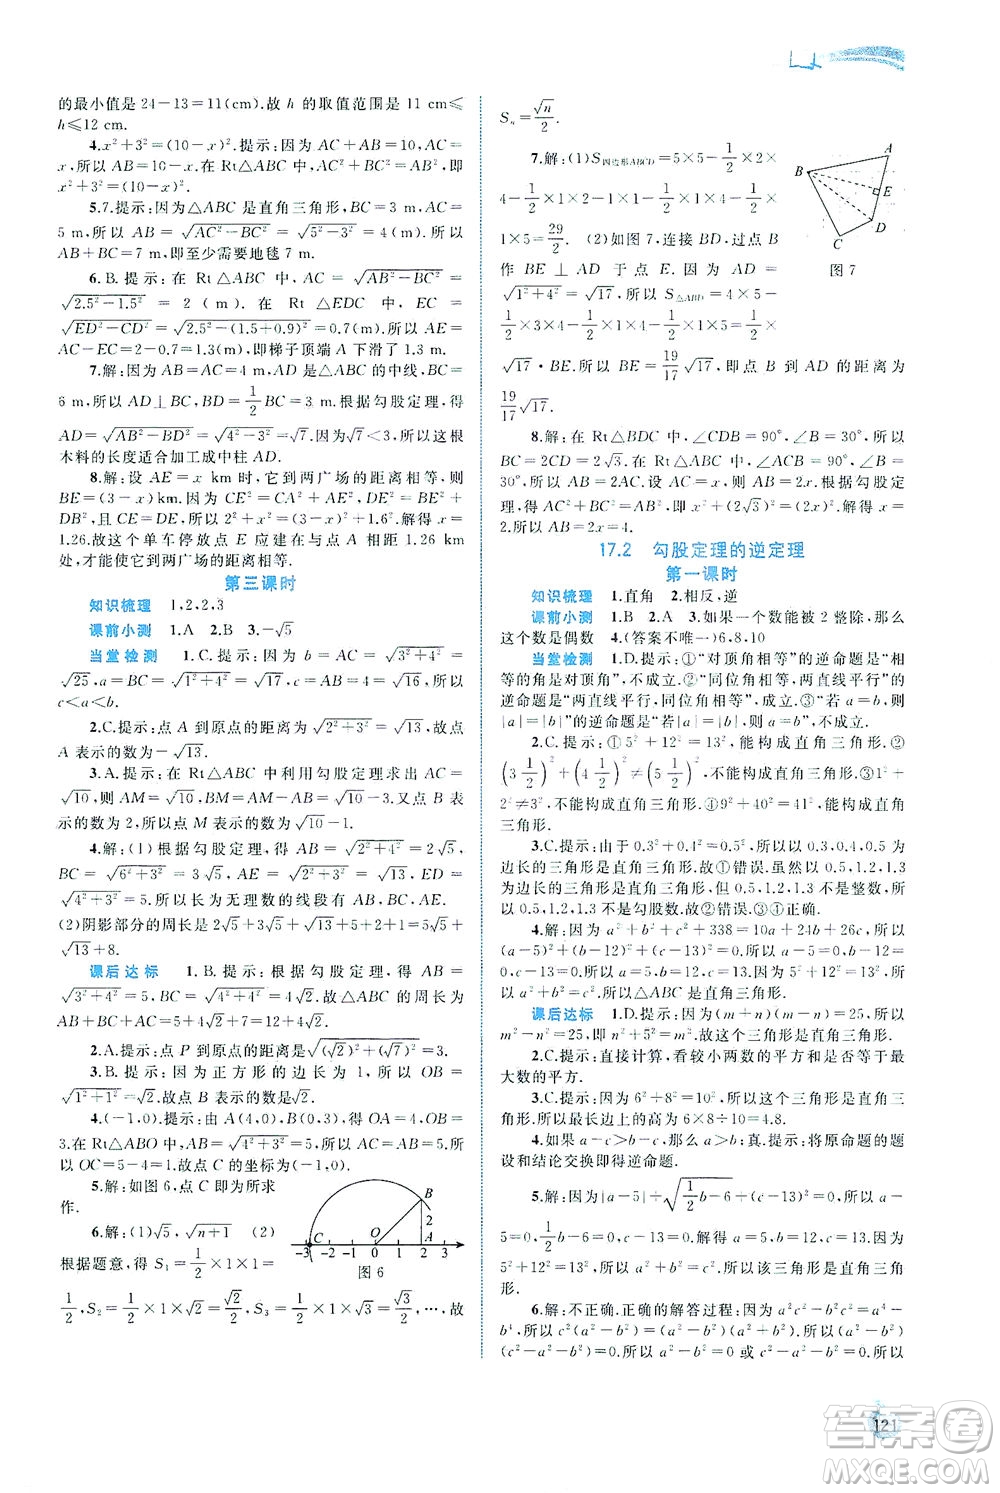 的最小值是 24-13=11(cm).故 h 的取值范围是 11 cm≤
h≤12 cm.
4.x²+3²=(10-x)² 提示:因为 AC+AB=10,AC=
x,所以 AB=10-x.在 Rt△ABC 中,AC²+BC²=AB²,即
x²+3²=(10-x)².
5.7.提示:因为△ABC 是直角三角形,BC=3 m,AC=
5 m,所以 AB=√(AC²-BC²)=√(5²-3²)=4(m).所以
AB+BC=7 m,即至少需要地毯 7 m.
6.B.提示:在 Rt △ABC 中,AC=√(AB²-BC²)=
√(2.5²-1.5²)=2(m).在 Rt △EDC 中,EC=
√(ED²-CD²)=√(2.5²-(1.5+0.9)²)=0.7(m).所以 AE=
AC-EC=2-0.7=1.3(m),即梯子顶端 A 下滑了 1.3 m.
7.解:因为 AB=AC=4 m,AD 是△ABC 的中线,BC=
6 m,所以 AD⊥BC,BD=1/2BC=3 m.根据勾股定理,得
AD=√(AB²-BD²)=√(4²-3²)=√7(m).因为√7<3,所以这根
木料的长度适合加工成中柱 AD.
8.解:设 AE=x km 时,它到两广场的距离相等,则
BE=(3-x)km.根据勾股定理,得 CE²=CA²+AE²,
DE²=DB²+BE².因为 CE=DE,所以 2²+x²=(3-x)²+1.6².解得 x=
1.26.故这个单车停放点 E 应建在与点 A 的距离 1.26 km
处,才能使它到两广场的距离相等.
第三课时
知识梳理 1,2,2,3
课前小测 1.A 2.B 3.-√5
当堂检测 1.C.提示:因为 b=AC=√(3²+4²)=
√25,a=BC=√(1²+4²)=√17,c=AB=4=√16,所以
c<a<b.
2.C.提示:点 A 到原点的距离为√(2²+3²)=√13,故点
A 表示的数为-√13.
3.A.提示:在 Rt△ABC 中利用勾股定理求出 AC=
√10,则 AM=√10,BM=AM-AB=√10-3.又因点 B 表
示的数为 2,所以点 M 表示的数为√10-1.
4.解:(1)根据勾股定理,得 AB=√(4²+2²)=2√5,
BC=√(6²+3²)=3√5,AE=√(2²+3²)=√13,CD=
√(3²+4²)=5.所以长为无理数的线段有 AB,BC,AE.
(2)阴影部分的周长为 2√5+3√5+5+2+1+√13=5√5+
√13+8.
课后达标 1.B.提示:根据勾股定理,得 AC=
√(3²+4²)=5,BC=√(1²+2²)=√5,故△ABC 的周长为
AB+BC+AC=5+√5+4=9+√5.
2.A.提示:点 P 到原点的距离是√((√2)²+(√7)²)=3.
3.B.提示:因为正方形的边长为 1,所以 OB=
√(1²+1²)=√2.故点 A 表示的数是√2.
4.(-1,0).提示:由 A(4,0),B(0,3),得 OA=4,OB=
3.在 Rt△ABO 中,AB=√(4²+3²)=5.所以 AC=AB=5.所
以 OC=5-4=1.故点 C 的坐标为(-1,0).
5.解:如图 6,点 C 即为所求
作.
6.解:(1)√5,√(n+1) (2)
根据题意,得 S₁=1/2×1×1=
1/2,S₂=1/2×1×√2=√2/2,S₃=1/2×1×√3=√3/2,…,故
B
2
C
O
A
-3 -2 -1 0 1 2 3
图 6
Sₙ=√n/2.
7.解:(1)S四边形ABCD=5×5-1/2×2×
4-1/2×1×2-1/2×1×4-1/2×
1×5=29/2. (2)如图 7,连接 BD,过点 B
作 BE⊥AD 于点 E.因为 AD=
√(1²+4²)=√17,所以 S△ABD=4×5-
1/2×3×4-1/2×1×4-1/2×1×5=19/2=1/2×
√17·BE.所以 BE=19/17√17,即点 B 到 AD 的距离为
19/17√17.
A
B
E
D
C
图 7
8.解:在 Rt△BDC 中,∠CDB=90°,∠B=30°,所以
BC=2CD=2√3.在 Rt△ABC 中,∠ACB=90°,∠B=
30°,所以 AB=2AC.设 AC=x,则 AB=2x.根据勾股定理,
得 AC²+BC²=AB²,所以 x²+(2√3)²=(2x)².解得 x=
2.所以 AB=2x=4.
17.2 勾股定理的逆定理
第一课时
知识梳理 1.直角 2.相反,逆
课前小测 1.B 2.A 3.如果一个数能被 2 整除,那么
这个数是偶数 4.(答案不唯一)6,8,10
当堂检测 1.D.提示:①“对顶角相等”的逆命题是“相
等的角是对顶角”,不成立.②“同位角相等,两直线平行”的
逆命题是“两直线平行,同位角相等”,成立.③“若 a=b,则
|a|=|b|”的逆命题是“若|a|=|b|,则 a=b”,不成立.
2.C.提示:①5²+12²=13²,能构成直角三角形.②
(3 1/2)²+(4 1/2)²≠(5 1/2)²,不能构成直角三角形.③1²+
2²≠3²,不能构成直角三角形.④9²+40²=41²,能构成直角
三角形.
3.C.提示:由于 0.3²+0.4²=0.5²,所以 0.3,0.4,0.5 为
边长的三角形是直角三角形.故①错误.虽然以 0.5,1.2,1.3
为边长的三角形是直角三角形,但是由于 0.5,1.2,1.3 不是整数,所以
0.5,1.2,1.3 不是勾股数.故②错误.③④正确.
4.解:因为 a²+b²+c²+338=10a+24b+26c,所以
(a-5)²+(b-12)²+(c-13)²=0.所以 a-5=0,b-12=
0,c-13=0.解得 a=5,b=12,c=13.因为 5²+12²=13²,
所以 a²+b²=c².所以△ABC 是直角三角形.
课后达标 1.D.提示:因为(m+n)(m-n)=25,所以
m²-n²=25,即 n²+5²=m².故这个三角形是直角三角形.
2.C.提示:直接计算,看较小两数的平方和是否等于最
大数的平方.
3.C.提示:因为 6²+8²=10²,所以这个三角形是直角三
角形.所以最长边上的高为 6×8÷10=4.8.
4.如果 a-c>b-c,那么 a>b;真.提示:将原命题的题
设和结论交换即得逆命题.
5.解:因为|a-5|+√(1/2b-6)+(c-13)²=0,所以 a-
5=0,1/2b-6=0,c-13=0.所以 a=5,b=12,c=13.因为
5²+12²=13²,所以 a²+b²=c².所以该三角形是直角三角
形.
6.解:不正确.正确的解答过程:因为 a²c²-b²c²=a⁴-
b⁴,所以 c²(a²-b²)=(a²-b²)(a²+b²).所以(a²-b²)
(c²-a²-b²)=0.所以 a²-b²=0 或 c²-a²-b²=0.所以
121
答案圈
MXQE.COM